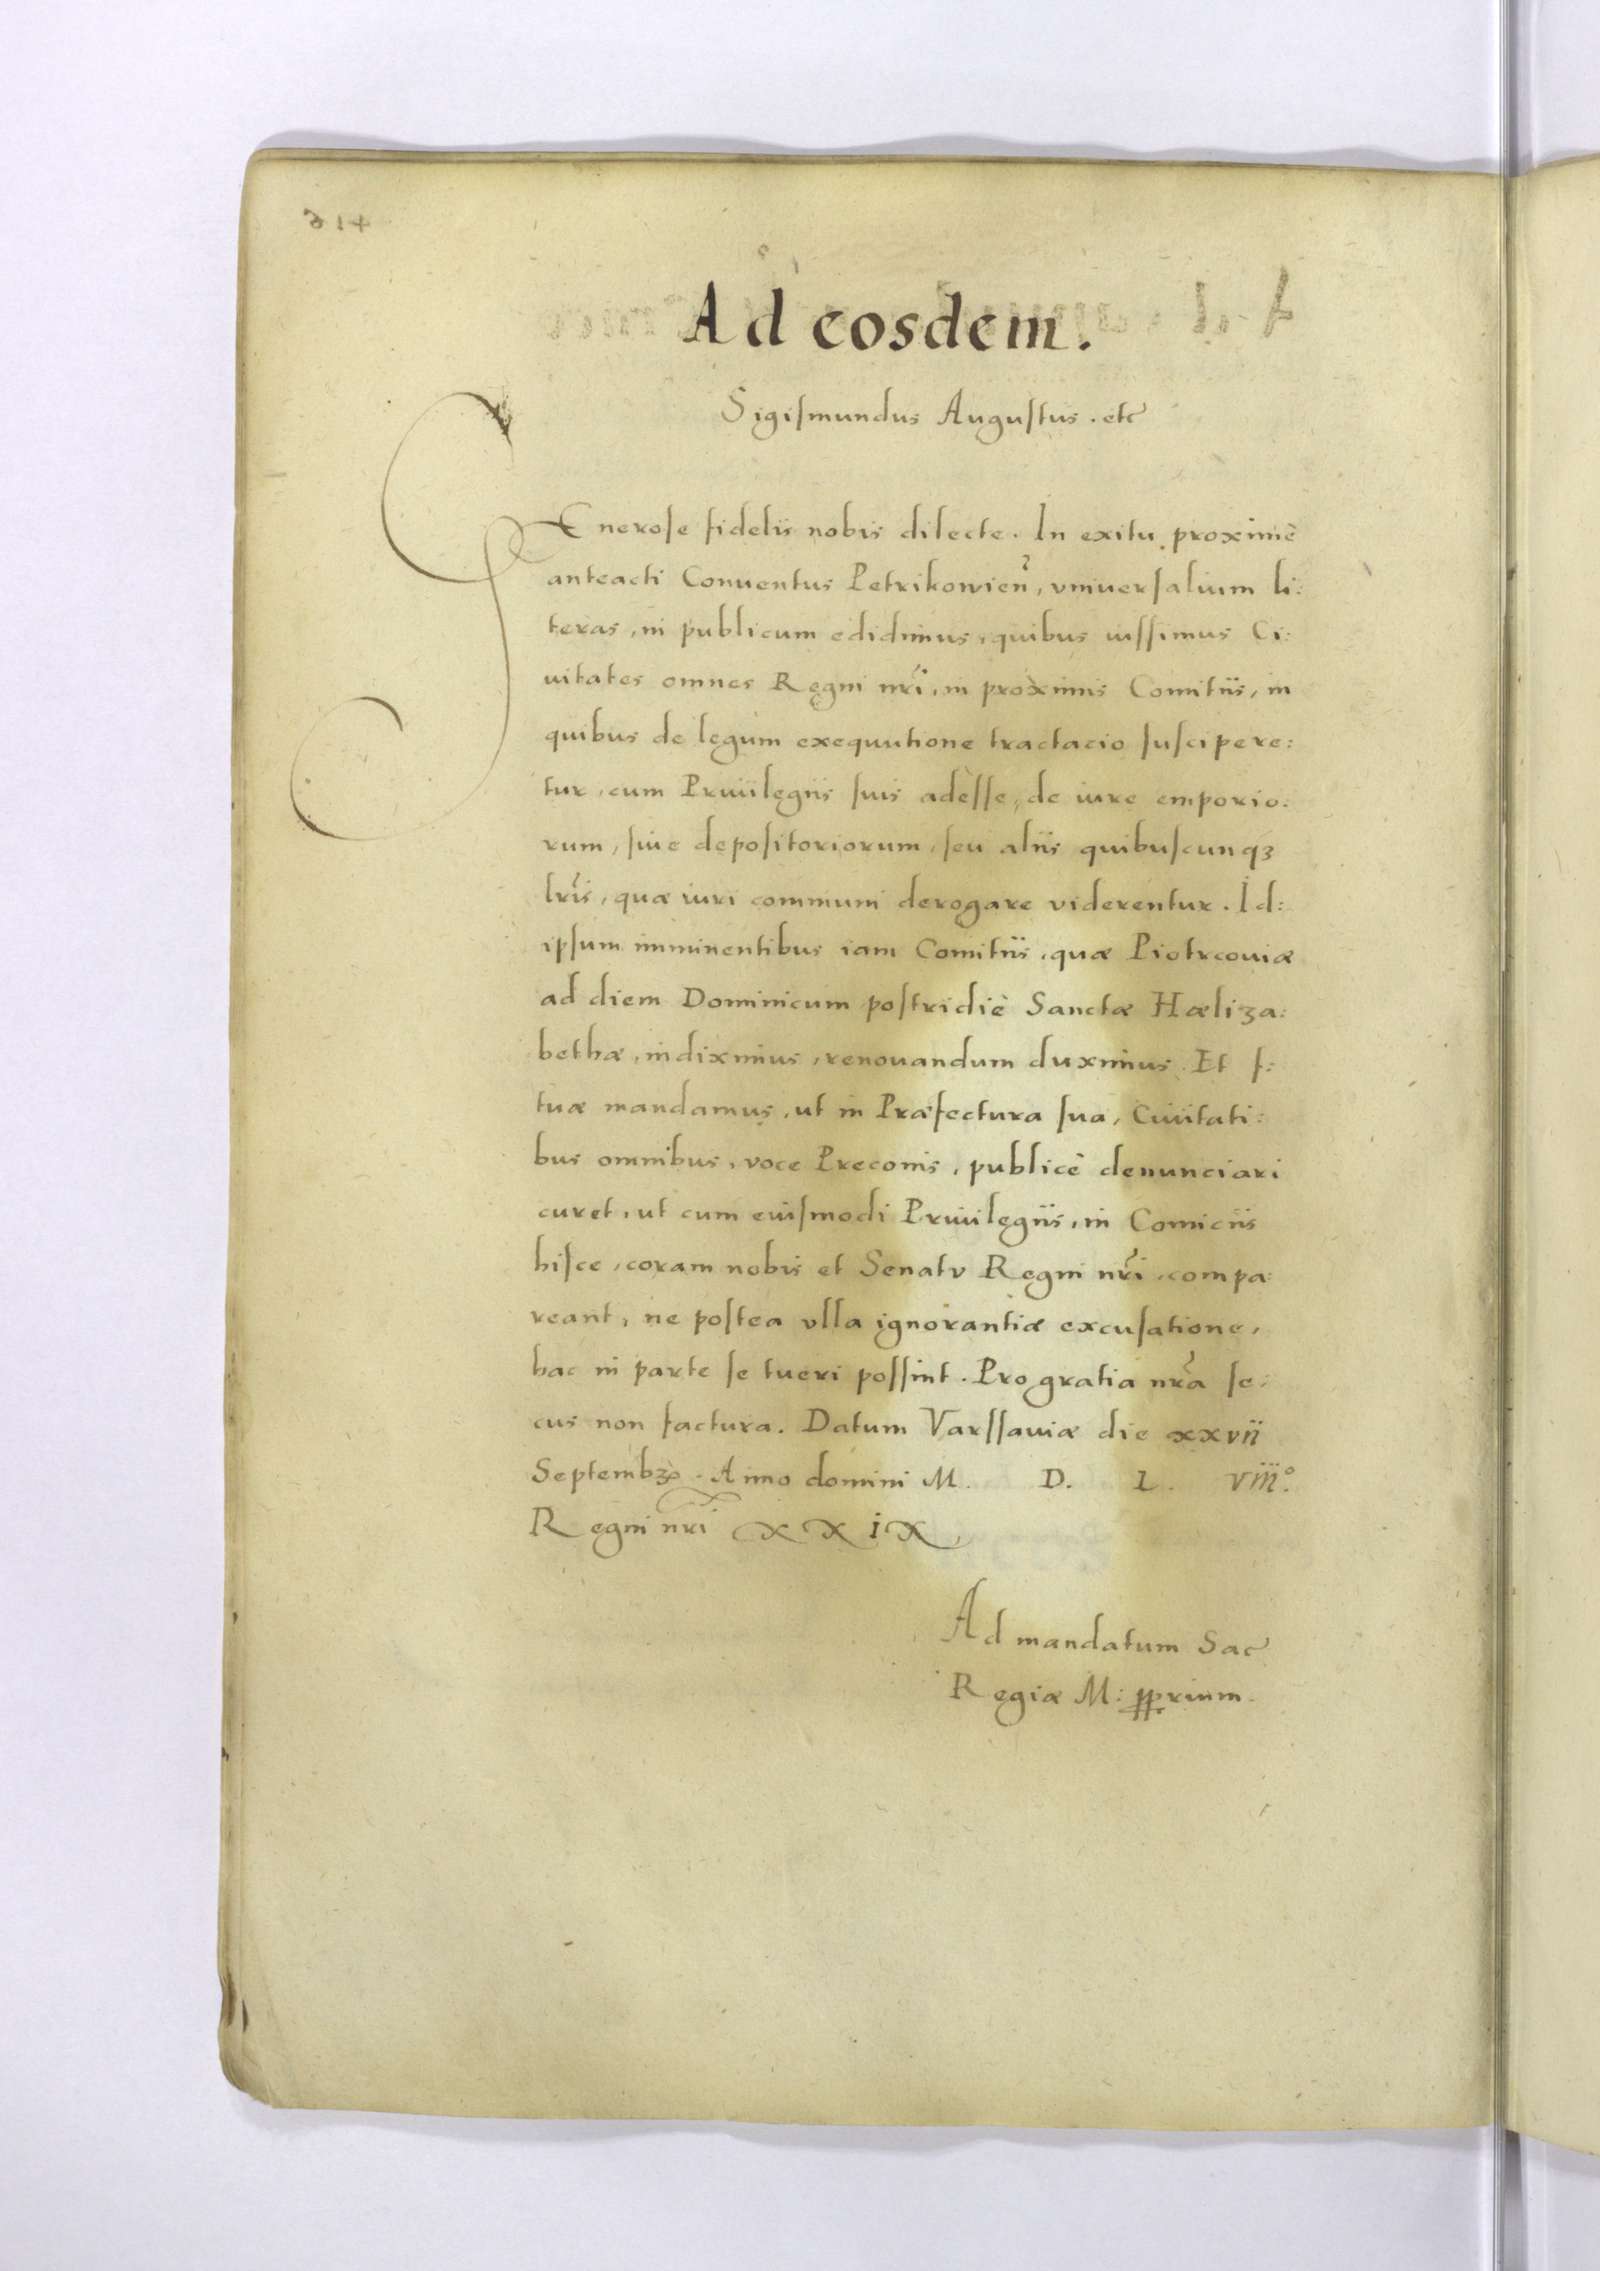 314
Ad eosdem.
Sigismundus Augustus. etc
GEnerose fidelis nobis dilecte. In exitu proximè
anteacti Conuentus Petrikowien, vniuersalium li:
teras, in publicum edidimus, quibus iussimus Ci:
uitates omnes Regni nri, in proximis Comitiis, in
quibus de legum exequutione tractacio suscipere:
tur, cum Priuilegiis suis adesse, de iure emporio:
rum, siue depositoriorum, seu aliis quibuscunqꝫ
lris, quæ iuri communi derogare viderentur. Id:
ipsum imminentibus iam Comitiis, quæ Piotrcouiæ
ad diem Dominicum postridiè Sanctæ Hæliza:
bethæ, indiximus, renouandum duximus. Et f:
tuæ mandamus, ut in Præfectura sua, Ciuitati:
bus omnibus, voce Preconis, publicè denunciari
curet, ut cum euismodi Priuilegiis, in Comiciis
hisce, coram nobis et Senatv Regni nri, compa:
reant, ne postea vlla ignorantiæ excusatione,
hac in parte se tueri possint. Pro gratia nra se:
cus non factura. Datum Varssauiæ die xxvii
Septembꝫ. Anno domini M. D. L. viii°.
Regni nri XXiX,
Ad mandatum Sac
Regiæ M: pprium.